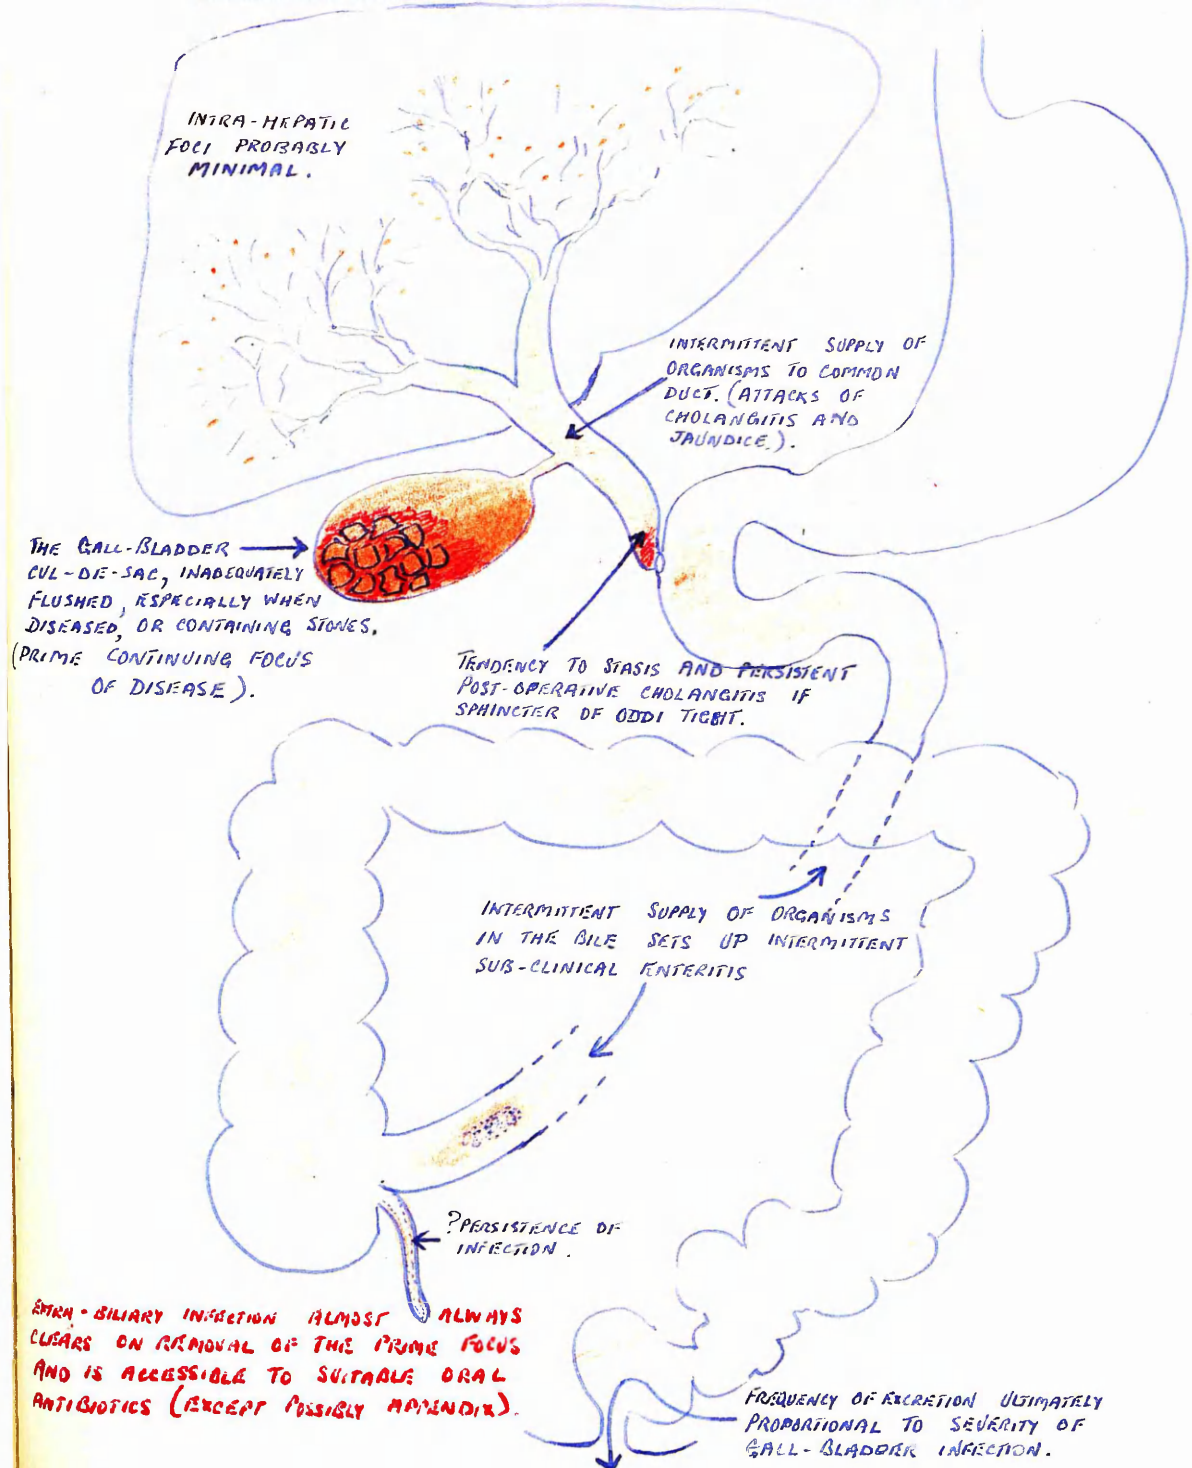 INTRA-HEPATIC
FOCI PROBABLY
MINIMAL.
INTERMITTENT SUPPLY OF
ORGANISMS TO COMMON
DUCT. (ATTACKS OF
CHOLANGITIS AND
JAUNDICE.).
THE GALL-BLADDER
CUL-DE-SAC, INADEQUATELY
FLUSHED, ESPECIALLY WHEN
DISEASED, OR CONTAINING STONES.
(PRIME CONTINUING FOCUS
OF DISEASE).
TENDENCY TO STASIS AND PERSISTENT
POST-OPERATIVE CHOLANGITIS IF
SPHINCTER OF ODDI TIGHT.
INTERMITTENT SUPPLY OF ORGANISMS
IN THE BILE SETS UP INTERMITTENT
SUB-CLINICAL ENTERITIS
?PERSISTENCE OF
INFECTION.
EXTRA-BILIARY INFECTION ALMOST ALWAYS
CLEARS ON REMOVAL OF THE PRIME FOCUS
AND IS ACCESSIBLE TO SUITABLE ORAL
ANTIBIOTICS (EXCEPT POSSIBLY APPENDIX).
FREQUENCY OF EXCRETION ULTIMATELY
PROPORTIONAL TO SEVERITY OF
GALL-BLADDER INFECTION.